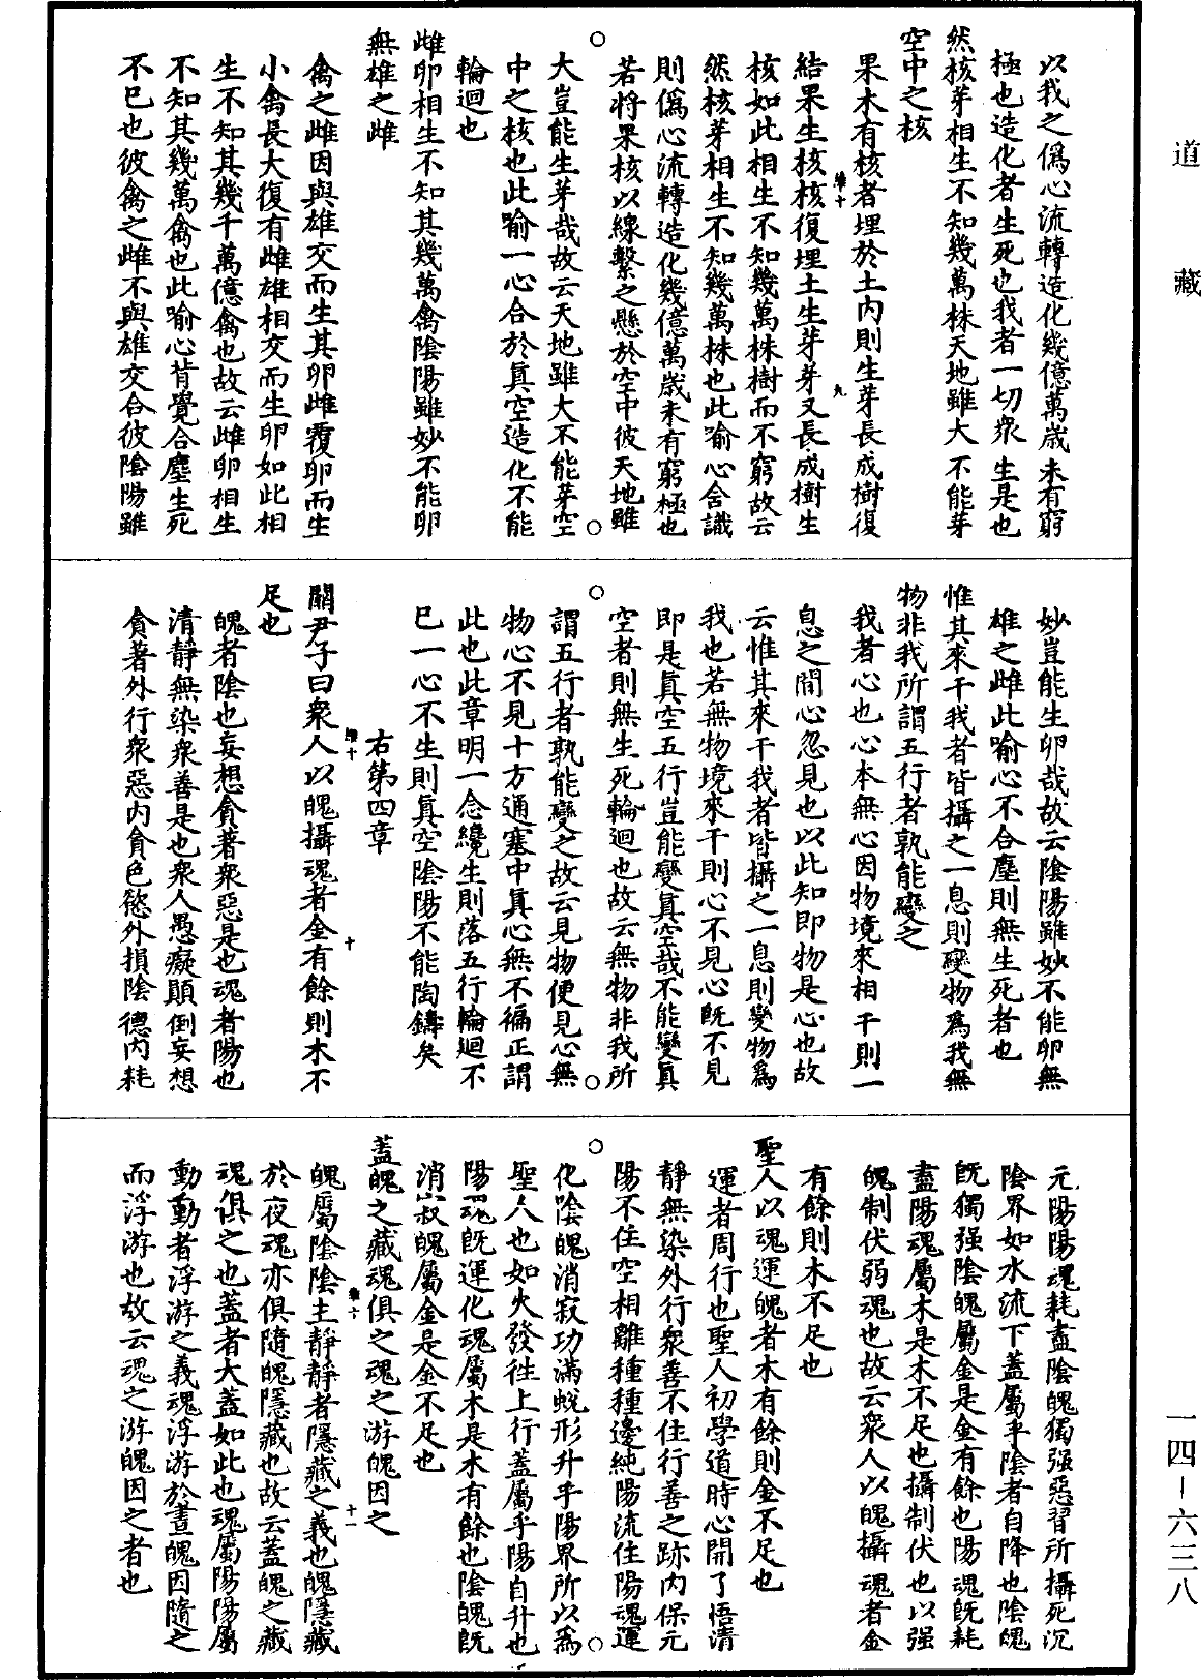 道藏
以我之僞心流轉造化幾億萬歲未有窮
極也造化者生死也我者一切衆生是也
然核芽相生不知幾萬株天地雖大不能芽
空中之核
果木有核者埋於土內則生芽長成樹復
結果生核核復埋土生芽芽又長成樹生
核如此相生不知幾萬株樹而不窮故云
然核芽相生不知幾萬株也此喻心含識
則僞心流轉造化幾億萬歲未有窮極也
若將果核以線繫之懸於空中彼天地雖
大豈能生芽哉故云天地雖大不能芽空
中之核也此喻一心合於真空造化不能
輪迴也
雌卵相生不知其幾萬禽陰陽雖妙不能卵
無雄之雌
禽之雌因與雄交而生其卵雌覆卵而生
小禽長大復有雌雄相交而生卵如此相
生不知其幾千萬億禽也故云雌卵相生
不知其幾萬禽也此喻心背覺合塵生死
不已也彼禽之雌不與雄交合彼陰陽雖
妙豈能生卵哉故云陰陽雖妙不能卵無
雄之雌此喻心不合塵則無生死者也
惟其來干我者皆攝之一息則變物為我無
物非我所謂五行者孰能變之
我者心也心本無心因物境來相干則一
息之間心忽見也以此知即物是心也故
云惟其來干我者皆攝之一息則變物為
我也若無物境來干則心不見心既不見
即是真空五行豈能變真空哉不能變真
空者則無生死輪迴也故云無物非我所
謂五行者孰能變之故云見物便見心無
物心不見十方通塞中真心無不徧正謂
此也此章明一念纔生則落五行輪迴不
已一心不生則真空陰陽不能陶鑄矣
右第四章
關尹子曰衆人以魄攝魂者金有餘則木不
足也
魄者陰也妄想貪著衆惡是也魂者陽也
清靜無染衆善是也衆人愚癡顛倒妄想
貪著外行衆惡內貪色慾外損陰德內耗
元陽陽魂耗盡陰魄獨强惡習所攝死沉
陰界如水流下蓋屬乎陰者自降也陰魄
既獨强陰魄屬金是金有餘也陽魂既耗
盡陽魂屬木是木不足也攝制伏也以强
魄制伏弱魂也故云衆人以魄攝魂者金
有餘則木不足也
聖人以魂運魄者木有餘則金不足也
運者周行也聖人初學道時心開了悟清
靜無染外行衆善不住行善之跡內保元
陽不住空相離種種邊純陽流住陽魂運
化陰魄消寂功滿蛻形升乎陽界所以為
聖人也如火發往上行蓋屬乎陽自升也
陽魂既運化魂屬木是木有餘也陰魄既
消寂魄屬金是金不足也
蓋魄之藏魂俱之魂之游魄因之
魄屬陰陰主靜靜者隱藏之義也魄隱藏
於夜魂亦俱隨魄隱藏也故云蓋魄之藏
魂俱之也蓋者大蓋如此也魂屬陽陽屬
動動者浮游之義魂浮游於晝魄因隨之
而浮游也故云魂之游魄因之者也
一四－六三八